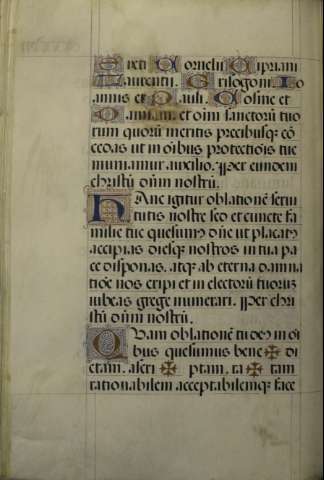 Sixti Cornelii Cipriani
Laurentii. Grisogoni. Io
annis et Pauli. Cosme et
Damiani. et oīm sanctorū tuo
rum quorū meritis precibusq; cō
cedas ut in oībus protectiōis tue
muniamur auxilio. Per eundem
christū dn̄m nostrū.
Hanc igitur oblationē serui
tutis nostre sed et cuncte fa
milie tue quesumꝰ dn̄e ut placatꝰ
accipias diesq; nostros in tua pa
ce disponas. atq; ab eterna damna
tiōe nos eripi et in electorū tuorū
iubeas grege numerari. Per chri
stū dn̄m nostrū.
Quam oblationē tu deꝰ in oī
bus quesumus bene ✠ di
ctam. ascri ✠ ptam. ra ✠ tam
rationabilem acceptabilemq; face